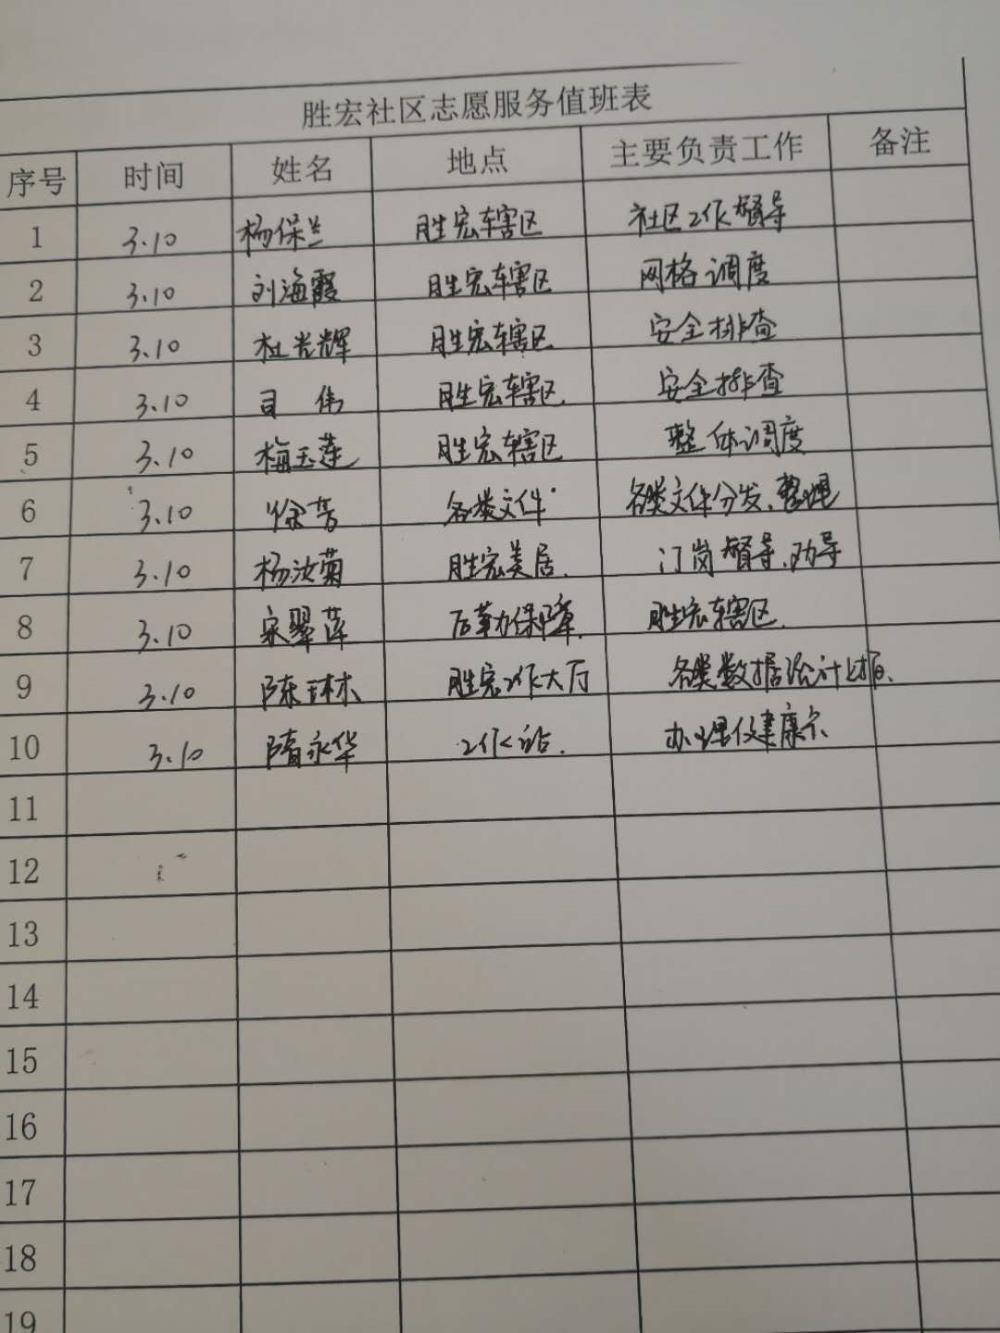 胜宏社区志愿服务值班表
序号 时间 姓名 地点 主要负责工作 备注
1 3.10 杨保兰 胜宏辖区 社区工作督导
2 3.10 刘海霞 胜宏辖区 网格调度
3 3.10 杜光辉 胜宏辖区 安全排查
4 3.10 司伟 胜宏辖区 安全排查
5 3.10 梅玉莲 胜宏辖区 整体调度
6 3.10 徐芳 各类文件 各类文件分发、整理
7 3.10 杨汝菊 胜宏美居 门岗督导、劝导
8 3.10 宋翠萍 后勤保障 胜宏辖区
9 3.10 陈琳 胜宏工作大厅 各类数据统计上报
10 3.10 隋永华 工作站 办理健康
11
12
13
14
15
16
17
18
19